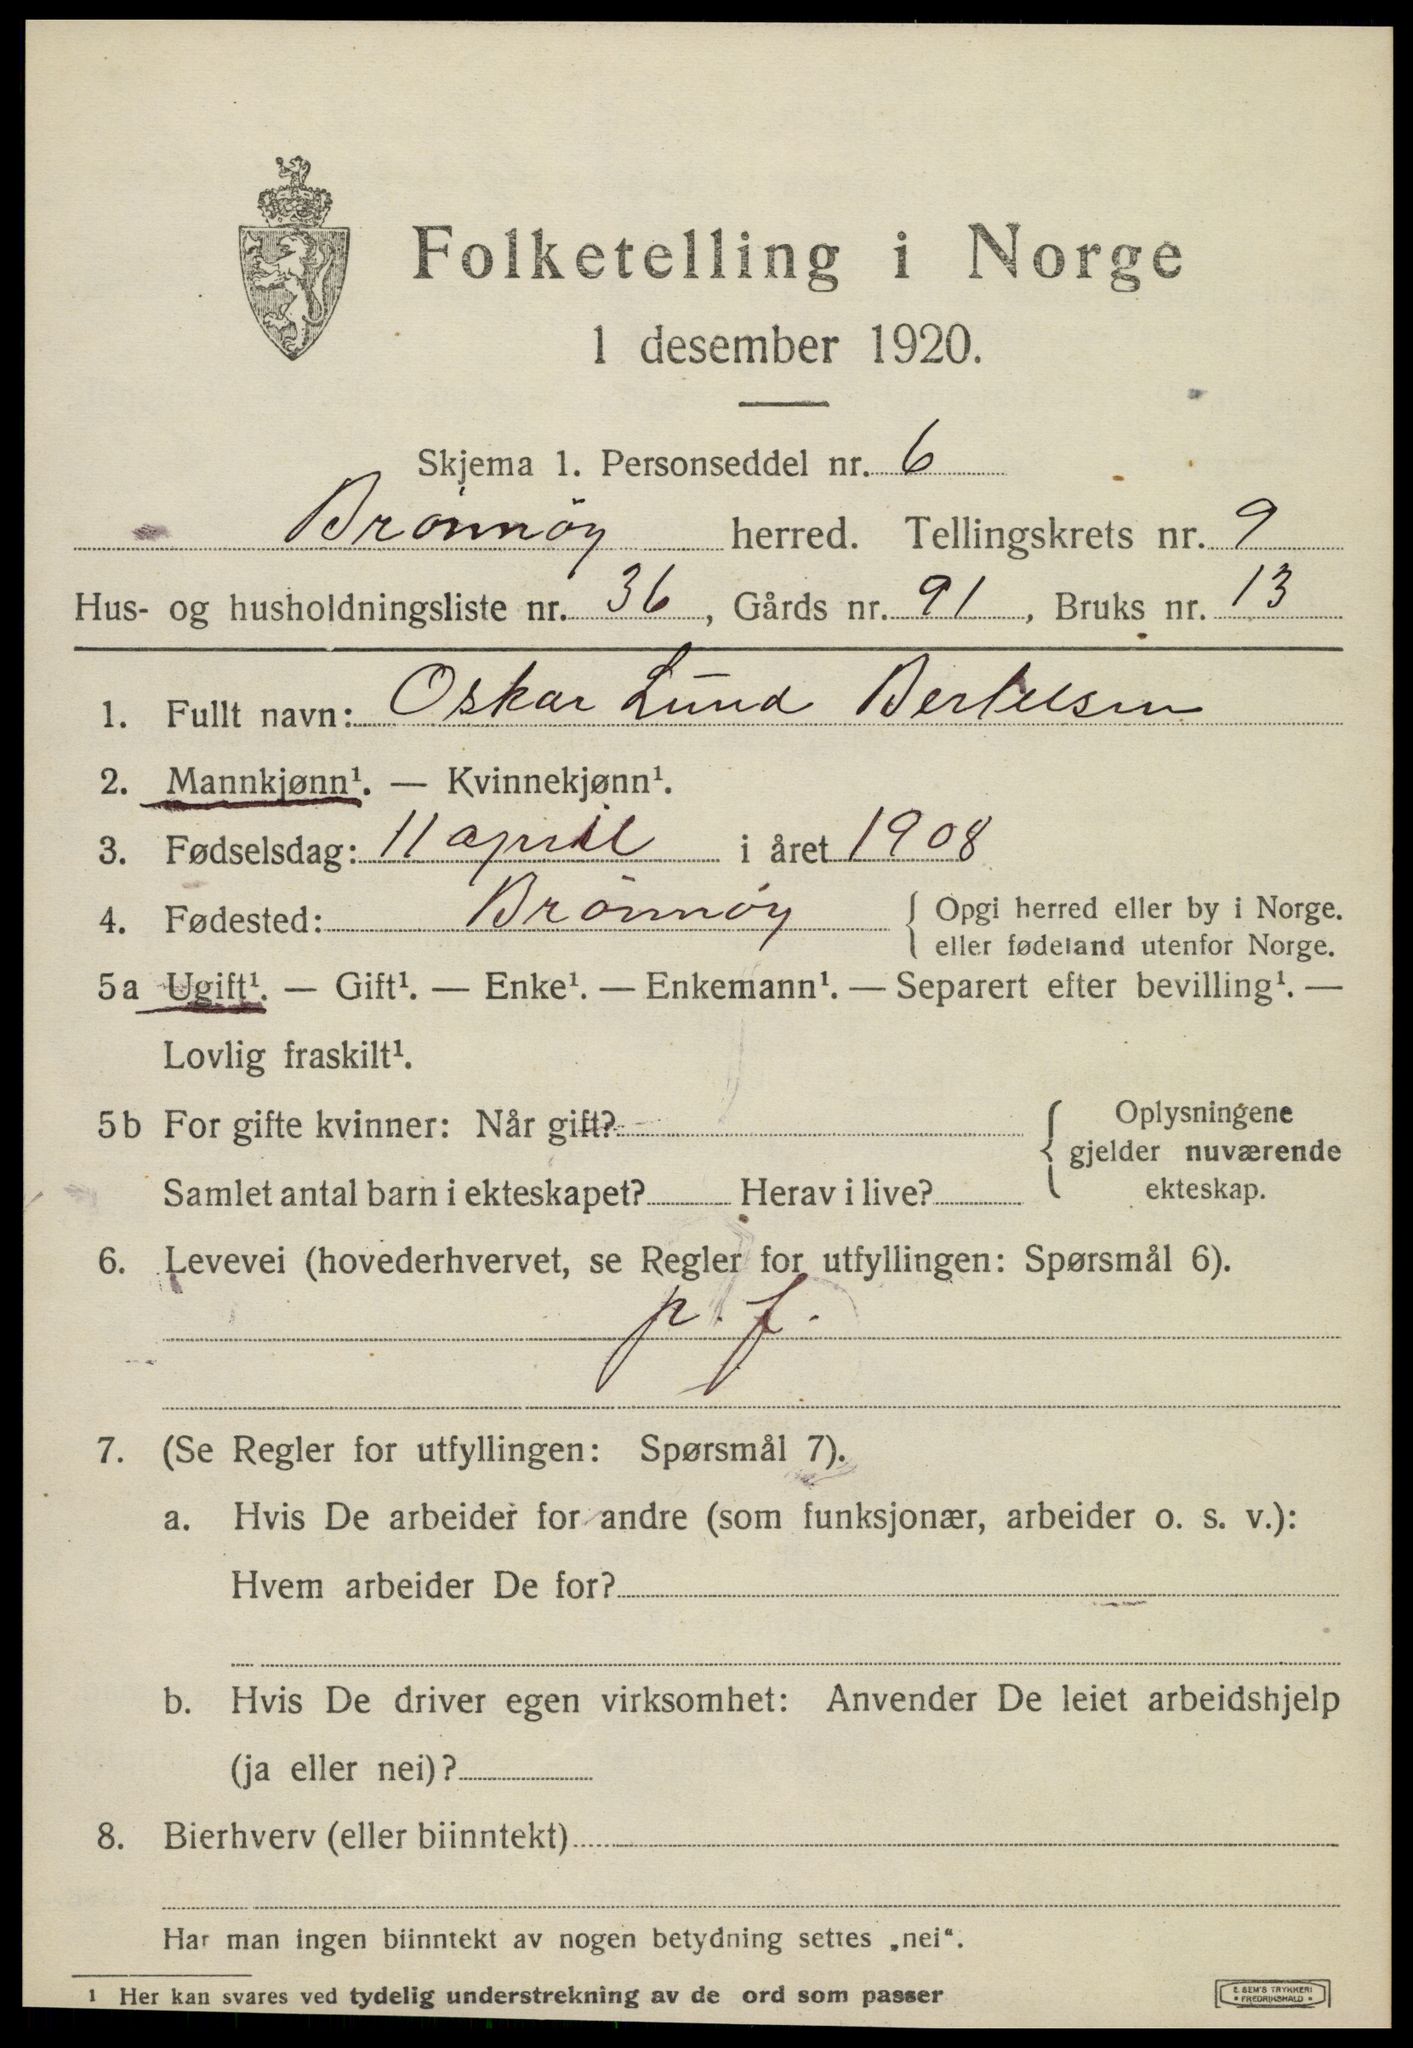 Folketelling i Norge
1 desember 1920.
Skjema 1. Personseddel nr. 6
Brönnöy herred. Tellingskrets nr. 9
Hus- og husholdningsliste nr. 36, Gårds nr. 91, Bruks nr. 13
1. Fullt navn: Oskar Lund Bertelsen
2. Mannkjønn¹. — Kvinnekjønn¹.
3. Fødselsdag: 11 april i året 1908
4. Fødested: Brönnöy { Opgi herred eller by i Norge.
eller fødeland utenfor Norge.
5a Ugift¹. — Gift¹. — Enke¹. — Enkemann¹. — Separert efter bevilling¹. —
Lovlig fraskilt¹.
5b For gifte kvinner: Når gift?
Samlet antal barn i ekteskapet? Herav i live?
{ Oplysningene
gjelder nuværende
ekteskap.
6. Levevei (hovederhvervet, se Regler for utfyllingen: Spørsmål 6).
p. f.
7. (Se Regler for utfyllingen: Spørsmål 7).
a. Hvis De arbeider for andre (som funksjonær, arbeider o. s. v.):
Hvem arbeider De for?
b. Hvis De driver egen virksomhet: Anvender De leiet arbeidshjelp
(ja eller nei)?
8. Bierhverv (eller biinntekt)
Har man ingen biinntekt av nogen betydning settes „nei“.
1 Her kan svares ved tydelig understrekning av de ord som passer
E. SEM'S TRYKKERI
• FREDRIKSHALD •